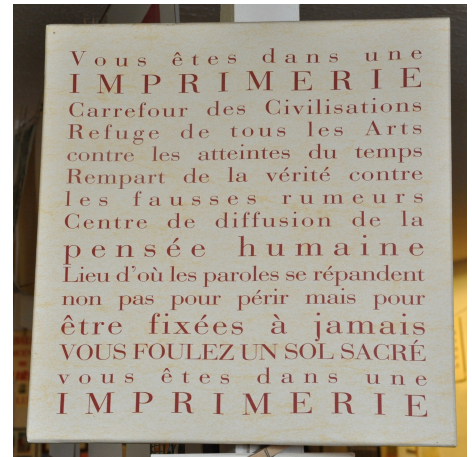 Vous êtes dans une
IMPRIMERIE
Carrefour des Civilisations
Refuge de tous les Arts
contre les atteintes du temps
Rempart de la vérité contre
les fausses rumeurs
Centre de diffusion de la
pensée humaine
Lieu d'où les paroles se répandent
non pas pour périr mais pour
être fixées à jamais
VOUS FOULEZ UN SOL SACRÉ
vous êtes dans une
IMPRIMERIE